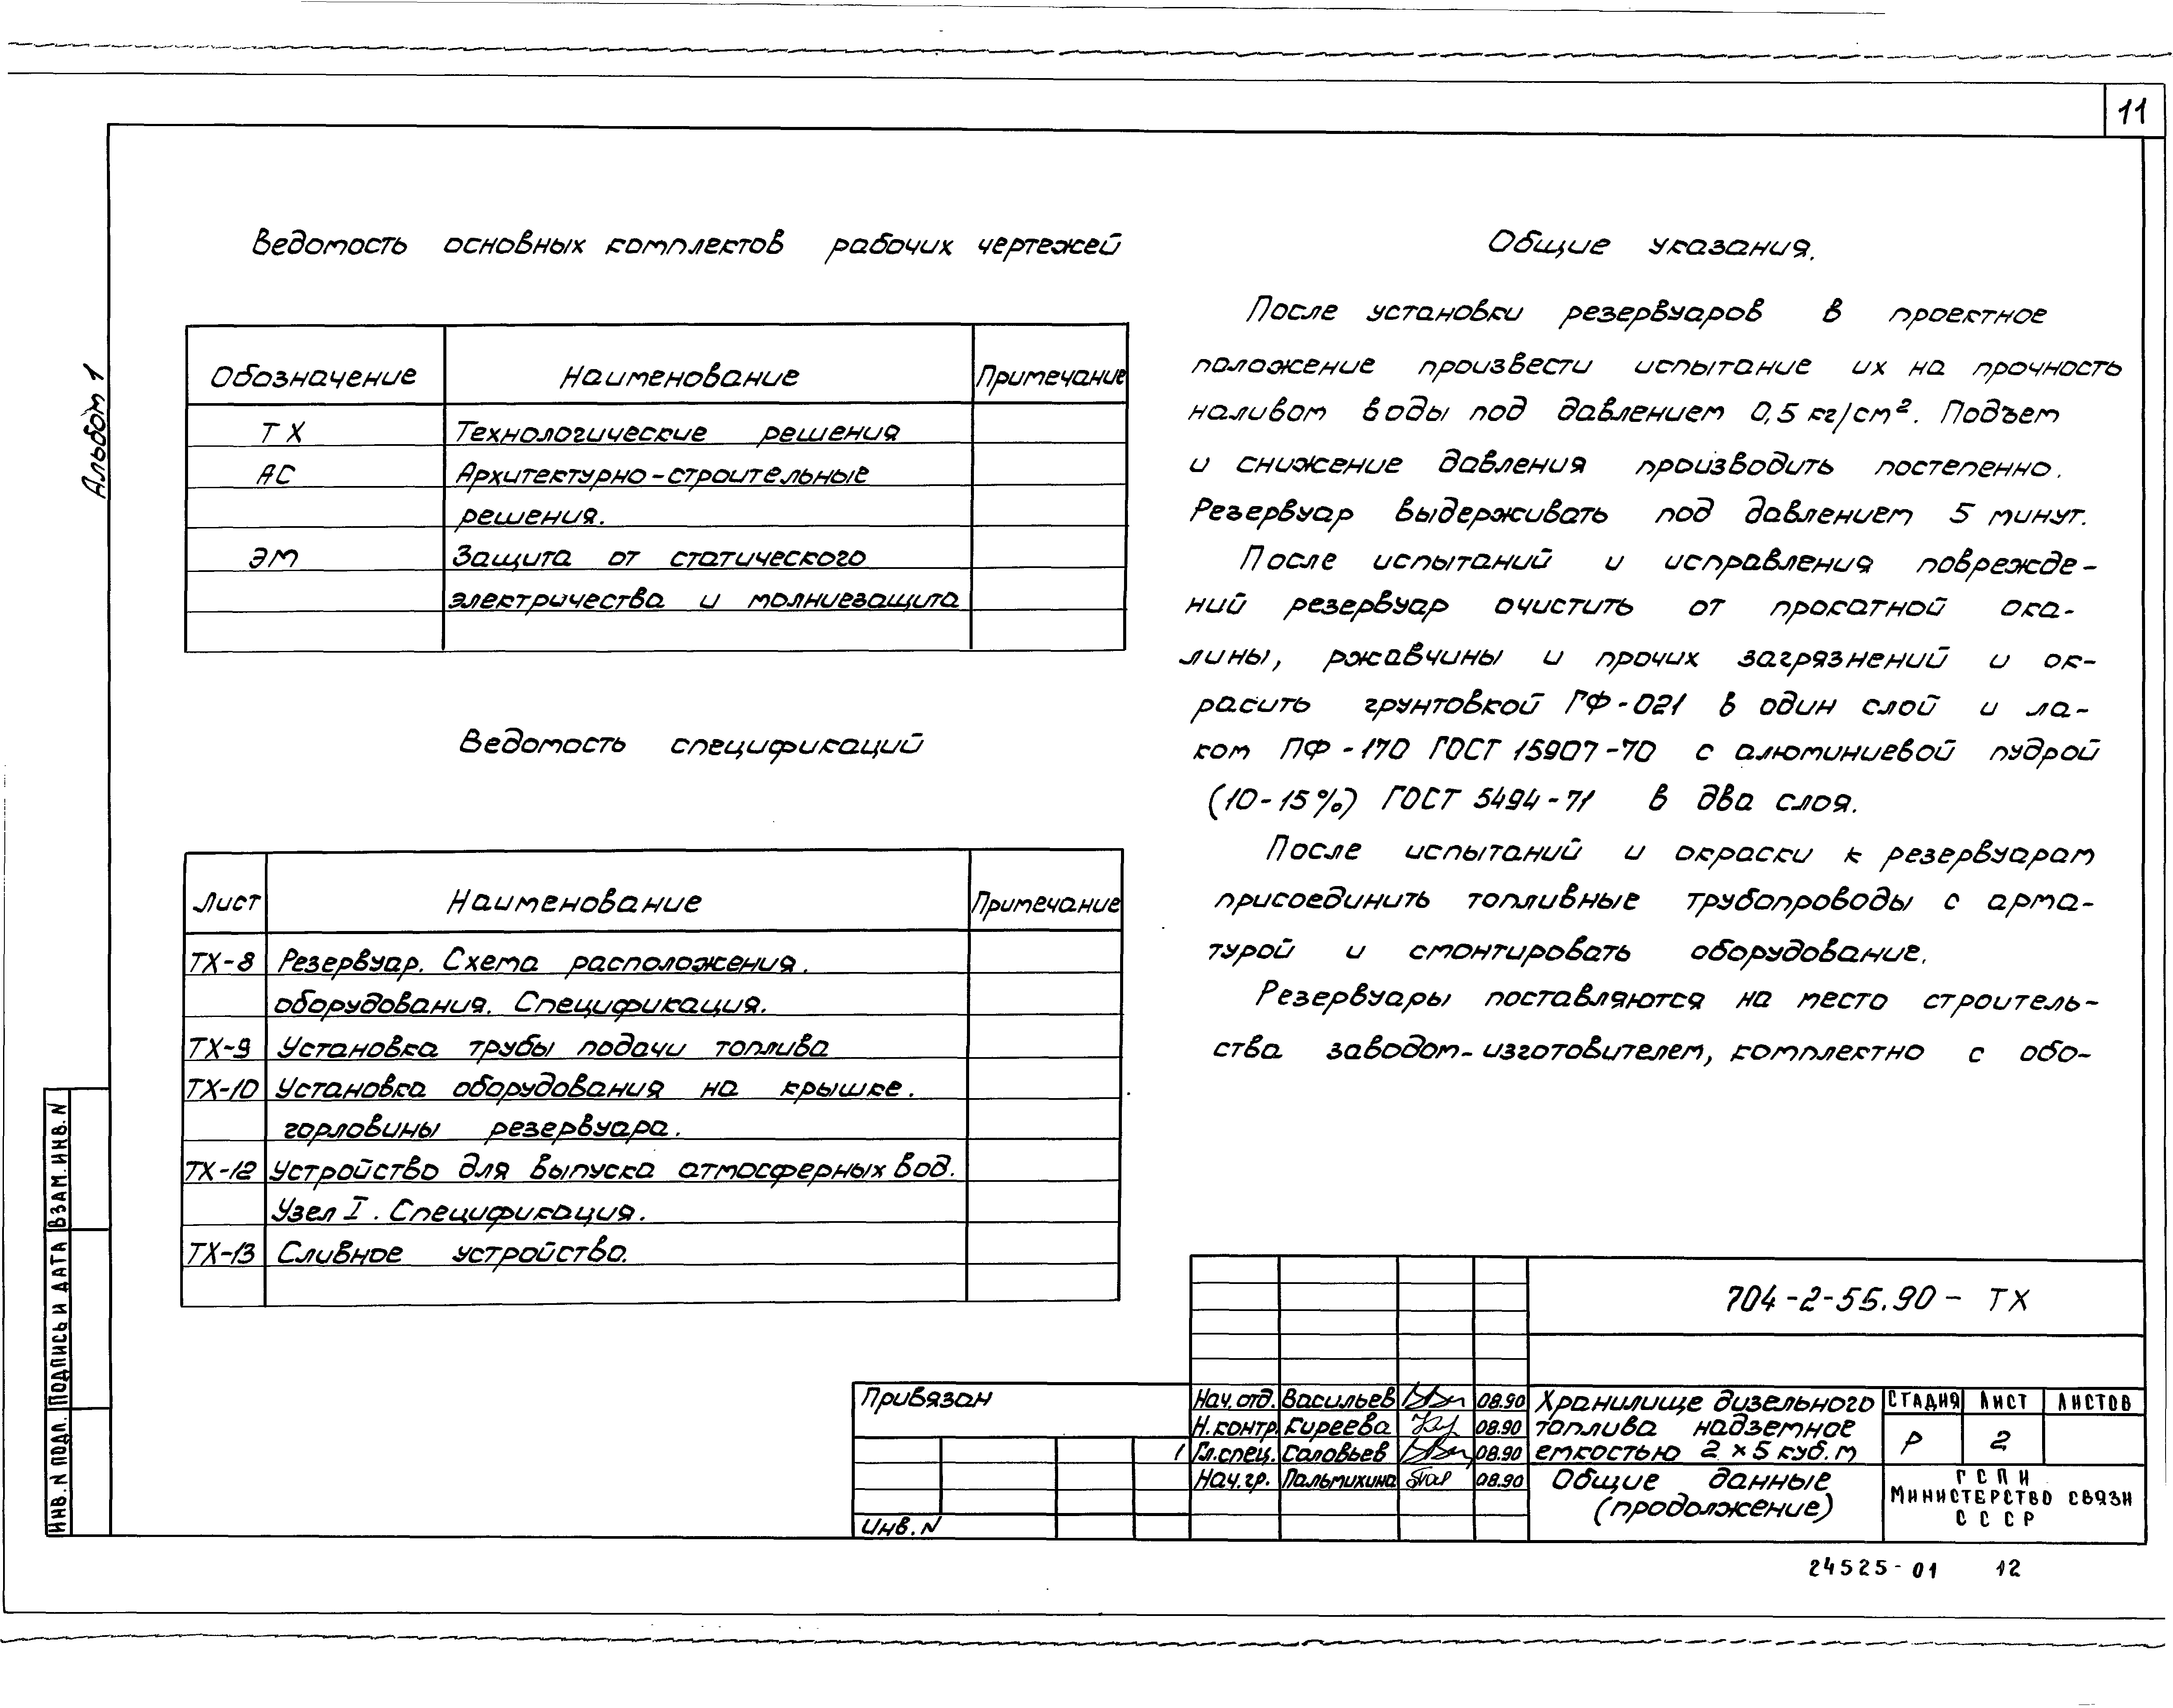 11
Альбом 1
Ведомость основных комплектов рабочих чертежей
Обозначение Наименование Примечание
ТХ Технологические решения
АС Архитектурно-строительные
решения.
ЭМ Защита от статического
электричества и молниезащита
Ведомость спецификаций
Лист Наименование Примечание
ТХ-8 Резервуар. Схема расположения.
оборудования. Спецификация.
ТХ-9 Установка трубы подачи топлива
ТХ-10 Установка оборудования на крышке.
горловины резервуара.
ТХ-12 Устройство для выпуска атмосферных вод.
Узел I. Спецификация.
ТХ-13 Сливное устройство.
Общие указания.
После установки резервуаров в проектное
положение произвести испытание их на прочность
наливом воды под давлением 0,5 кг/см². Подъем
и снижение давления производить постепенно.
Резервуар выдерживать под давлением 5 минут.
После испытаний и исправления поврежде-
ний резервуар очистить от прокатной ока-
лины, ржавчины и прочих загрязнений и ок-
расить грунтовкой ГФ-021 в один слой и ла-
ком ПФ-170 ГОСТ 15907-70 с алюминиевой пудрой
(10-15%) ГОСТ 5494-71 в два слоя.
После испытаний и окраски к резервуарам
присоединить топливные трубопроводы с арма-
турой и смонтировать оборудование.
Резервуары поставляются на место строитель-
ства заводом-изготовителем, комплектно с обо-
ИНВ. N ПОДЛ. ПОДПИСЬ И ДАТА ВЗАМ. ИНВ. N
704-2-55.90- ТХ
Привязан
Инв. N
1
Нач. отд. Васильев 08.90
Н. контр. Киреева 08.90
Гл. спец. Соловьев 08.90
Нач. гр. Пальмихина 08.90
Хранилище дизельного
топлива надземное
емкостью 2×5 куб. м
СТАДИЯ ЛИСТ ЛИСТОВ
Р 2
Общие данные
(продолжение)
ГСПИ
МИНИСТЕРСТВО СВЯЗИ
СССР
24525-01 12